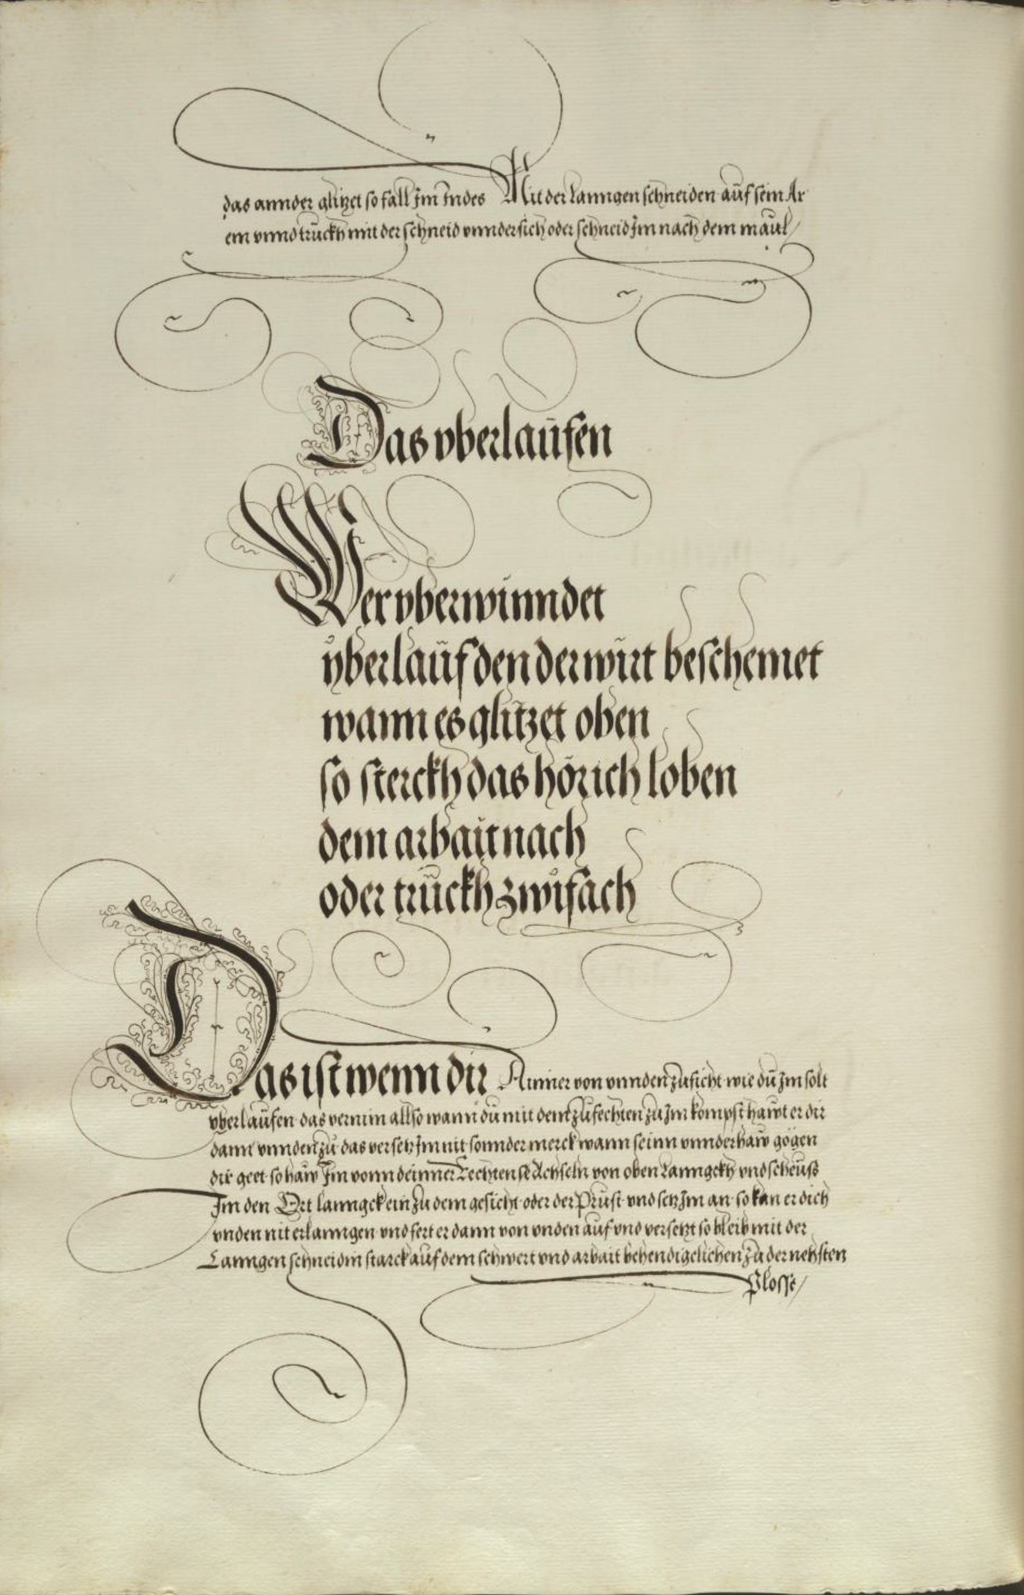 das annder glitzet so fall Im Indes Mit der Lanngen schneiden auf sein Ar
em vnnd truckh mit der schneid vnndersich oder schneid Im nach dem maul /
Das vberlaufen
Wer vberwinndet
vberlauf den der wirt beschemet
wann es glitzet oben
so sterckh das hör ich loben
dem arbait nach
oder truckh zwifach
Das ist wenn dir Ainner von vnnden zusicht wie du Im solt
vberlaufen das vernim allso wann du mit dem zufechten zu Im kompst hawt er dir
dann vnnden zu das versetz Im nit sonnder merck wann sein vnnderhaw gögen
dir geet so haw Im vonn deinner Rechtens Achseln von oben Lanngckh vnd scheuss
Im den Ort lanngck ein zu dem gesicht oder der Prust vnd setz Im an so kan er dich
vnden nit erlanngen vnd fert er dann von vnden auf vnd versetzt so bleib mit der
Lanngen schneidin starck auf dem schwert vnd arbait behendigclichen zu der nehsten
Plosse /